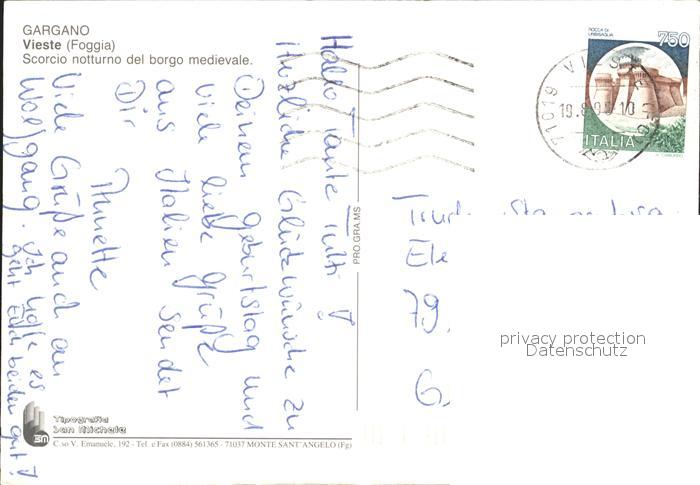 GARGANO
Vieste (Foggia)
Scorcio notturno del borgo medievale.
Hallo Tante Tutti!
Herzliche Glückwünsche zu
Deinem Geburtstag und
viele liebe Grüße
aus Italien sendet
Dir
Annette
Viele Grüße auch an
Wolfgang. Ich hoffe es
geht Euch beiden gut!
PRO.GRA.MS
ROCCA DI
URBISAGLIA
750
ITALIA
71019 VIESTE
19.8.
Ele
79.
G.
privacy protection
Datenschutz
Tipografia
San Michele
3M
C.so V. Emanuele, 192 - Tel. e Fax (0884) 561365 - 71037 MONTE SANT'ANGELO (Fg)